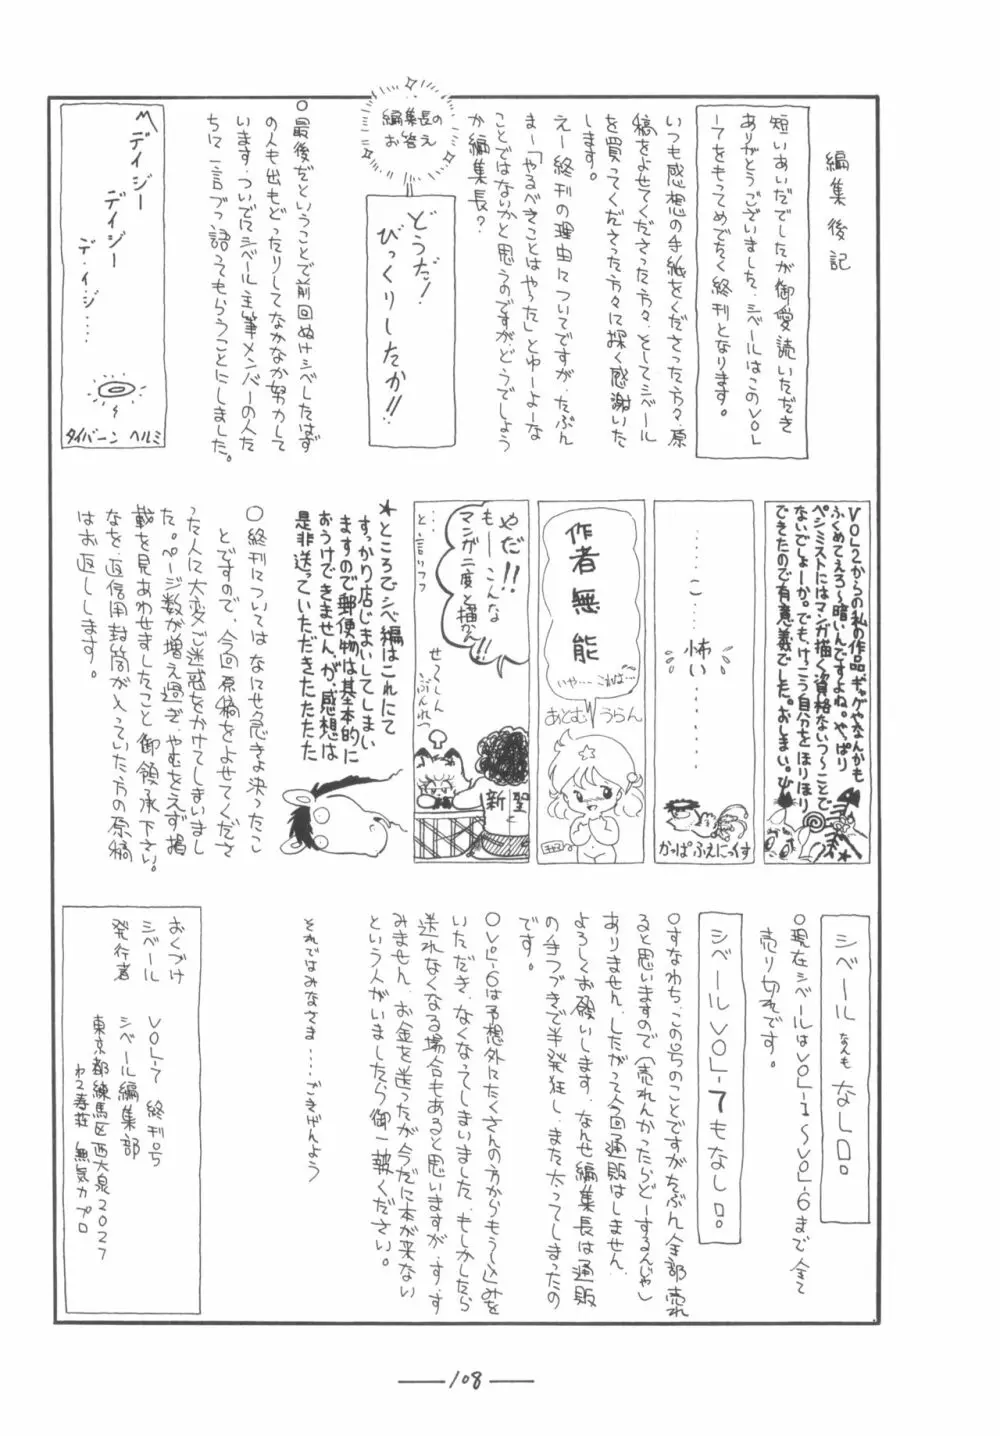 編集後記
短いあいだでしたが御愛読いただき
ありがとうございました。シベールはこのVOL
ー7をもってめでたく終刊となります。
いつも感想の手紙をくださった方々、原
稿をよせてくださった方々、そしてシベール
を買ってくださった方々に深く感謝いた
します。
えー終刊の理由についてですが、たぶん
まー「やるべきことはやった」とゆーよーな
ことではないかと思うのですが、どうでしょう
か編集長?
編集長の
お答え
どうだ!
びっくりしたか!!
○最後だということで前回ぬけシベしたはず
の人も出もどったりしてなかなか努力して
います。ついでにシベール主筆メンバーの人た
ちに一言づつ語ってもらうことにしました。
デイジー
デイジー
デ・イ・ジ・・・・
タイバーン ヘルミ
VOL2からの私の作品ギャグやなんかも
ふくめてえろ〜暗いんですよね。やっぱり
ペシミストにはマンガ描く資格ないつーことで
ないでしょーか。でも、けっこう自分をほりほり
できたので有意義でした。おしまい。
・・・・・・・こ・・・・怖い・・・・・・・
かっぱふぇにっくす
作者無能
いや…これは…
あとむ うらん
やだ!!
もーーこんな
マンガ二度と描かん!!
・・・・と、言いつつ
せっしん
ぶんれつ
新聖
★ところでシベ編はこれにて
すっかり店じまいしてしまい
ますので郵便物は基本的に
おうけできませんが、感想は
是非送っていただきたたたた
○終刊についてはなにせ急きょ決ったこ
とですので、今回原稿をよせてくださ
った人に大変ご迷惑をかけてしまいまし
た。ページ数が増え過ぎ、やむをえず掲
載を見あわせましたこと御領承下さい。
なを、返信用封筒が入っていた方の原稿
はお返しします。
シベールなんもなし口。
○現在シベールはVOL-1〜VOL-6まで全て
売り切れです。
シベールVOL-7もなし口。
○すなわち、この号のことですがたぶん全部売れ
ると思いますので(売れんかったらどーするんじゃ)
ありません。したがって今回通販はしません。
よろしくお願いします。なんせ編集長は通販
の手つづきで半発狂し、また太ってしまったの
です。
○VOL-6は予想外にたくさんの方からもうし込みを
いただき、なくなってしまいました。もしかしたら
送れなくなる場合もあると思いますが、す、す
みません。お金を送ったが今だに本が来ない
という人がいましたら御一報ください。
それではみなさま・・・・ごきげんよう
おくづけ
シベール VOL-7 終刊号
発行者 シベール編集部
東京都練馬区西大泉2027
わこ寿荘 無気力プロ
108